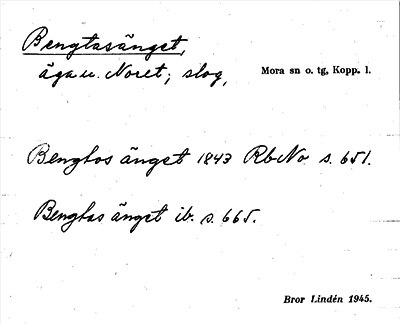 Bengtasänget,
äga u. Noret; slog,
Mora sn o. tg, Kopp. l.
Bengtos änget 1843 RbNo s. 651.
Bengtas änget ib. s. 665.
Bror Lindén 1945.